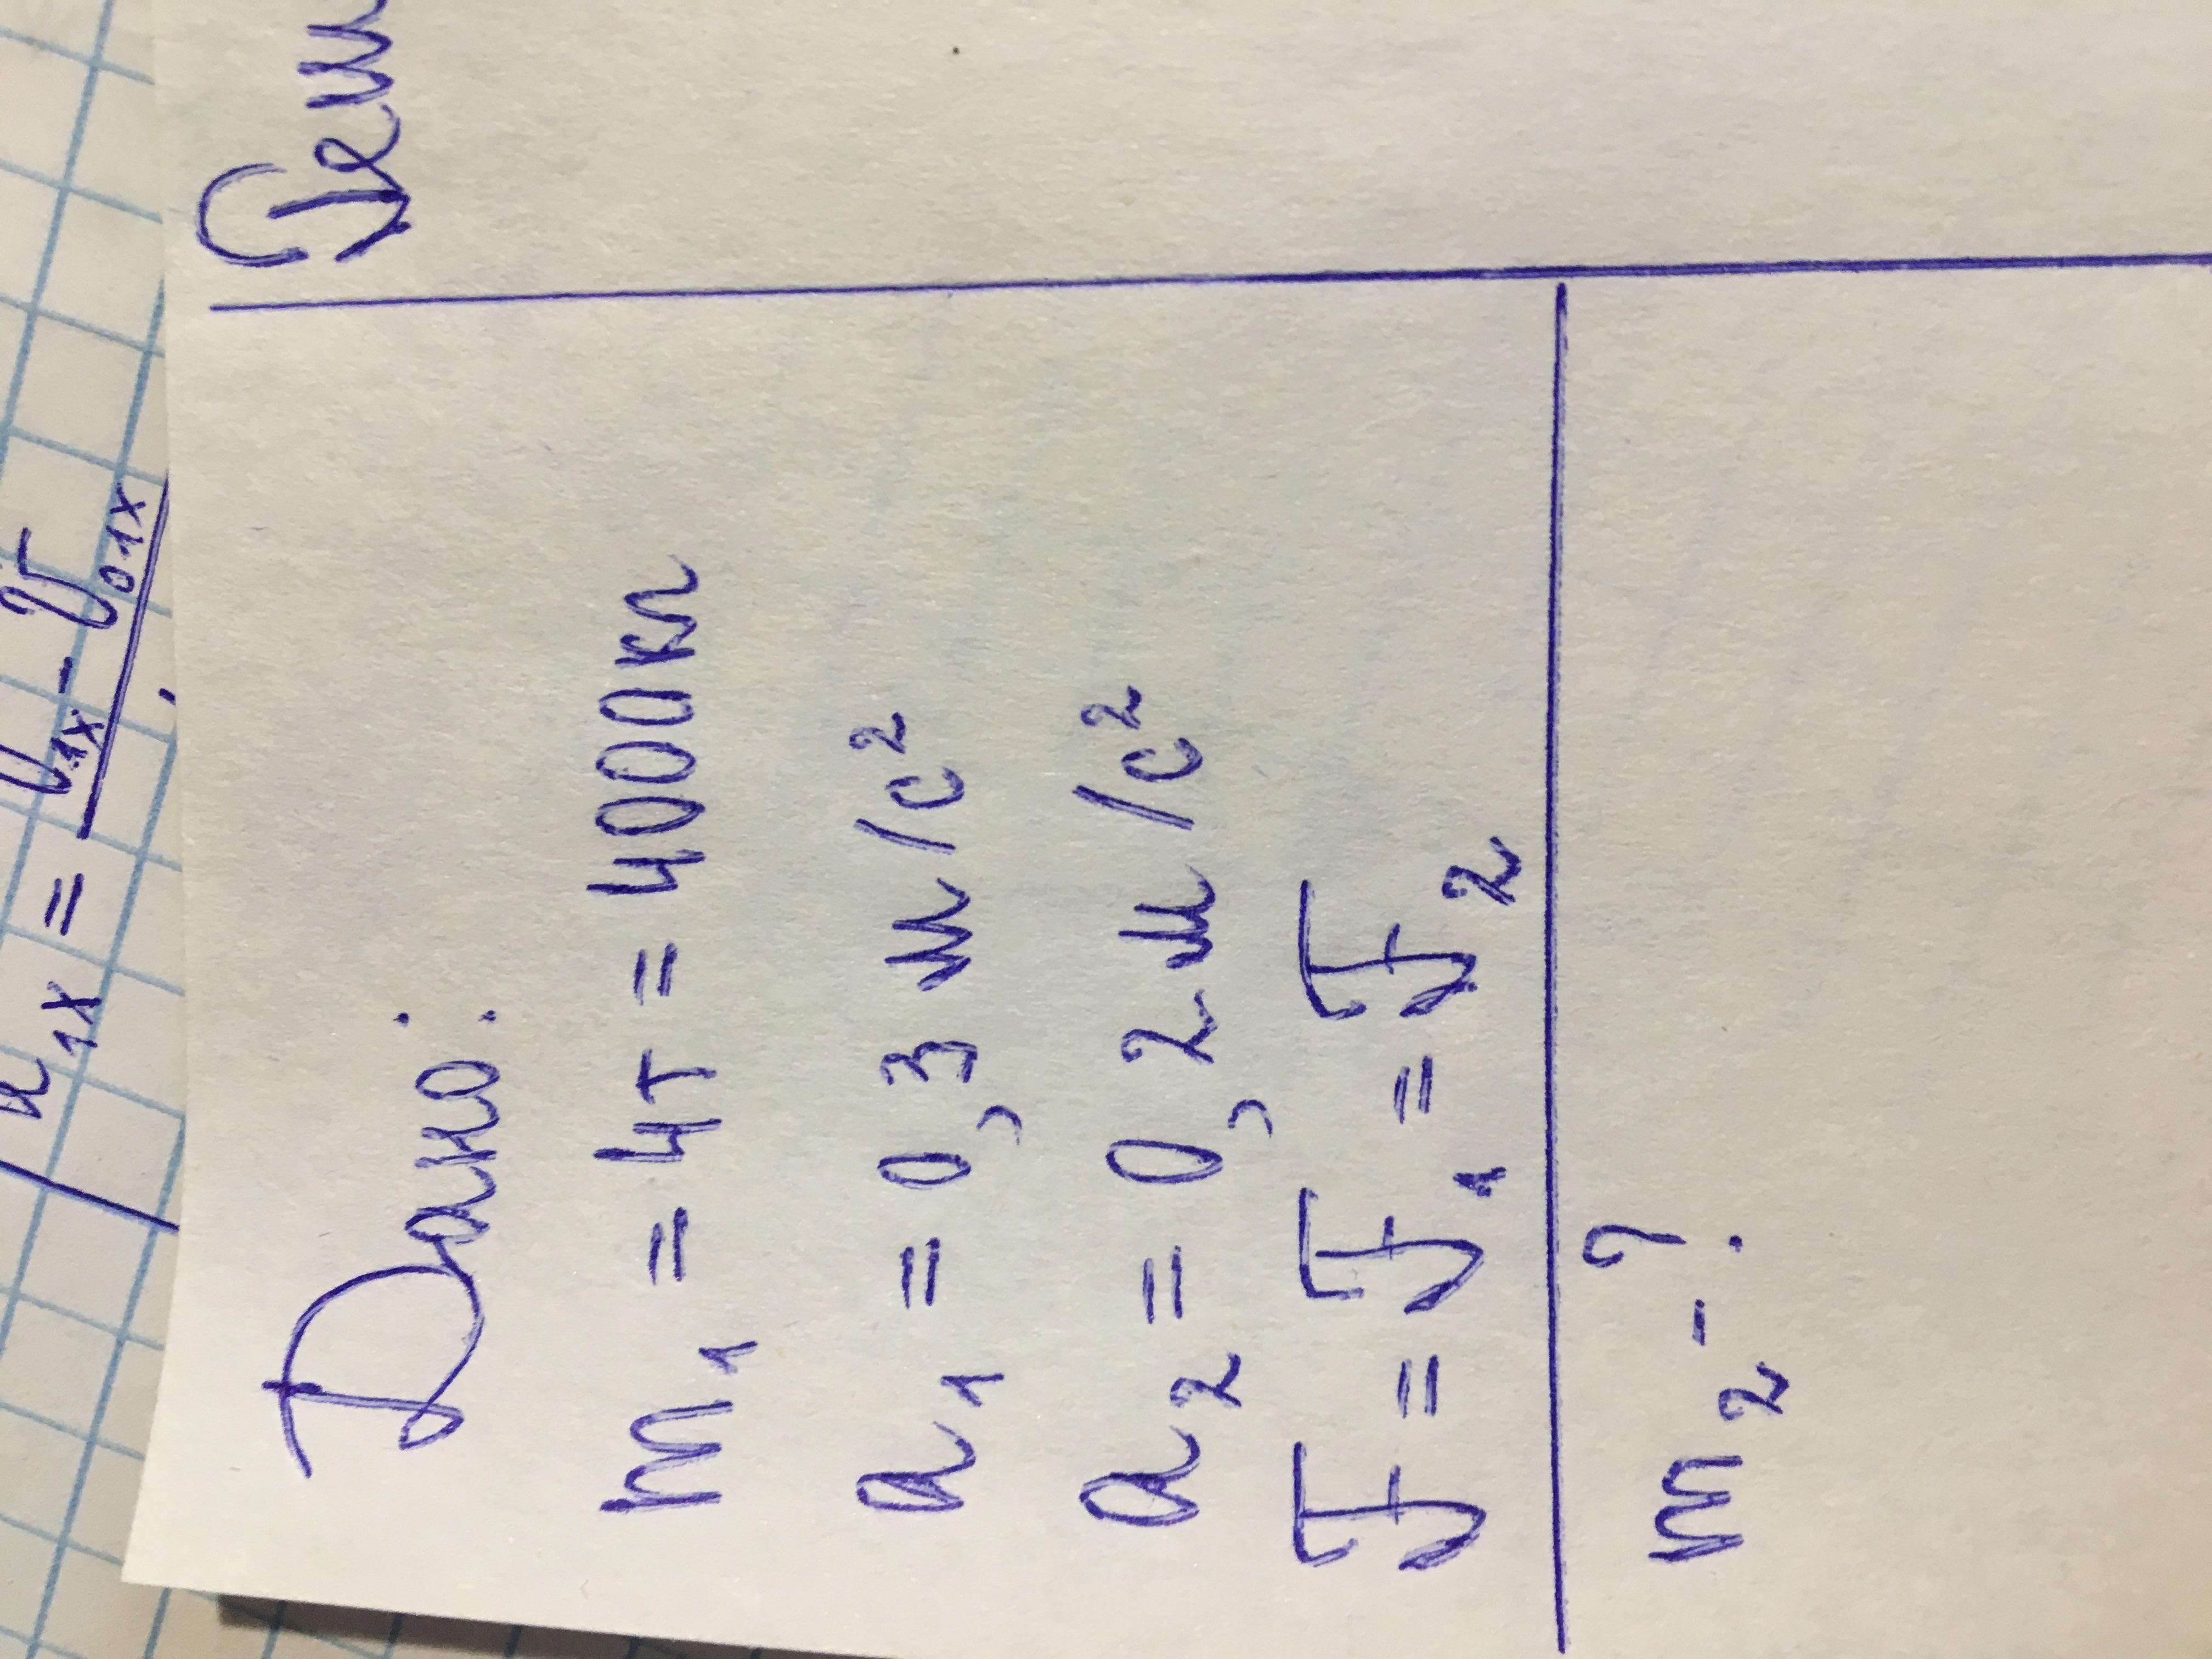 a₁ₓ = v₁ₓ - v₀₁ₓ
Дано:
m₁ = 4т = 4000кг
a₁ = 0,3 м/с²
a₂ = 0,2 м/с²
F = F₁ = F₂
m₂ - ?
Реш